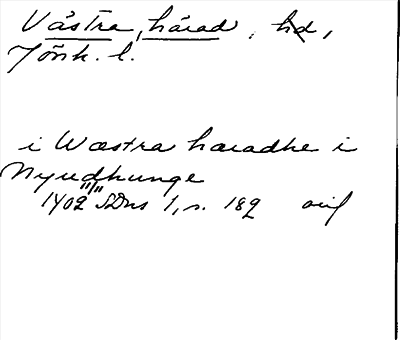 Västra härad, hd,
Jönk. l.
i Wæstra hæradhe i
Nyudhunge
1402 11/11 SDns 1, s. 182 avf